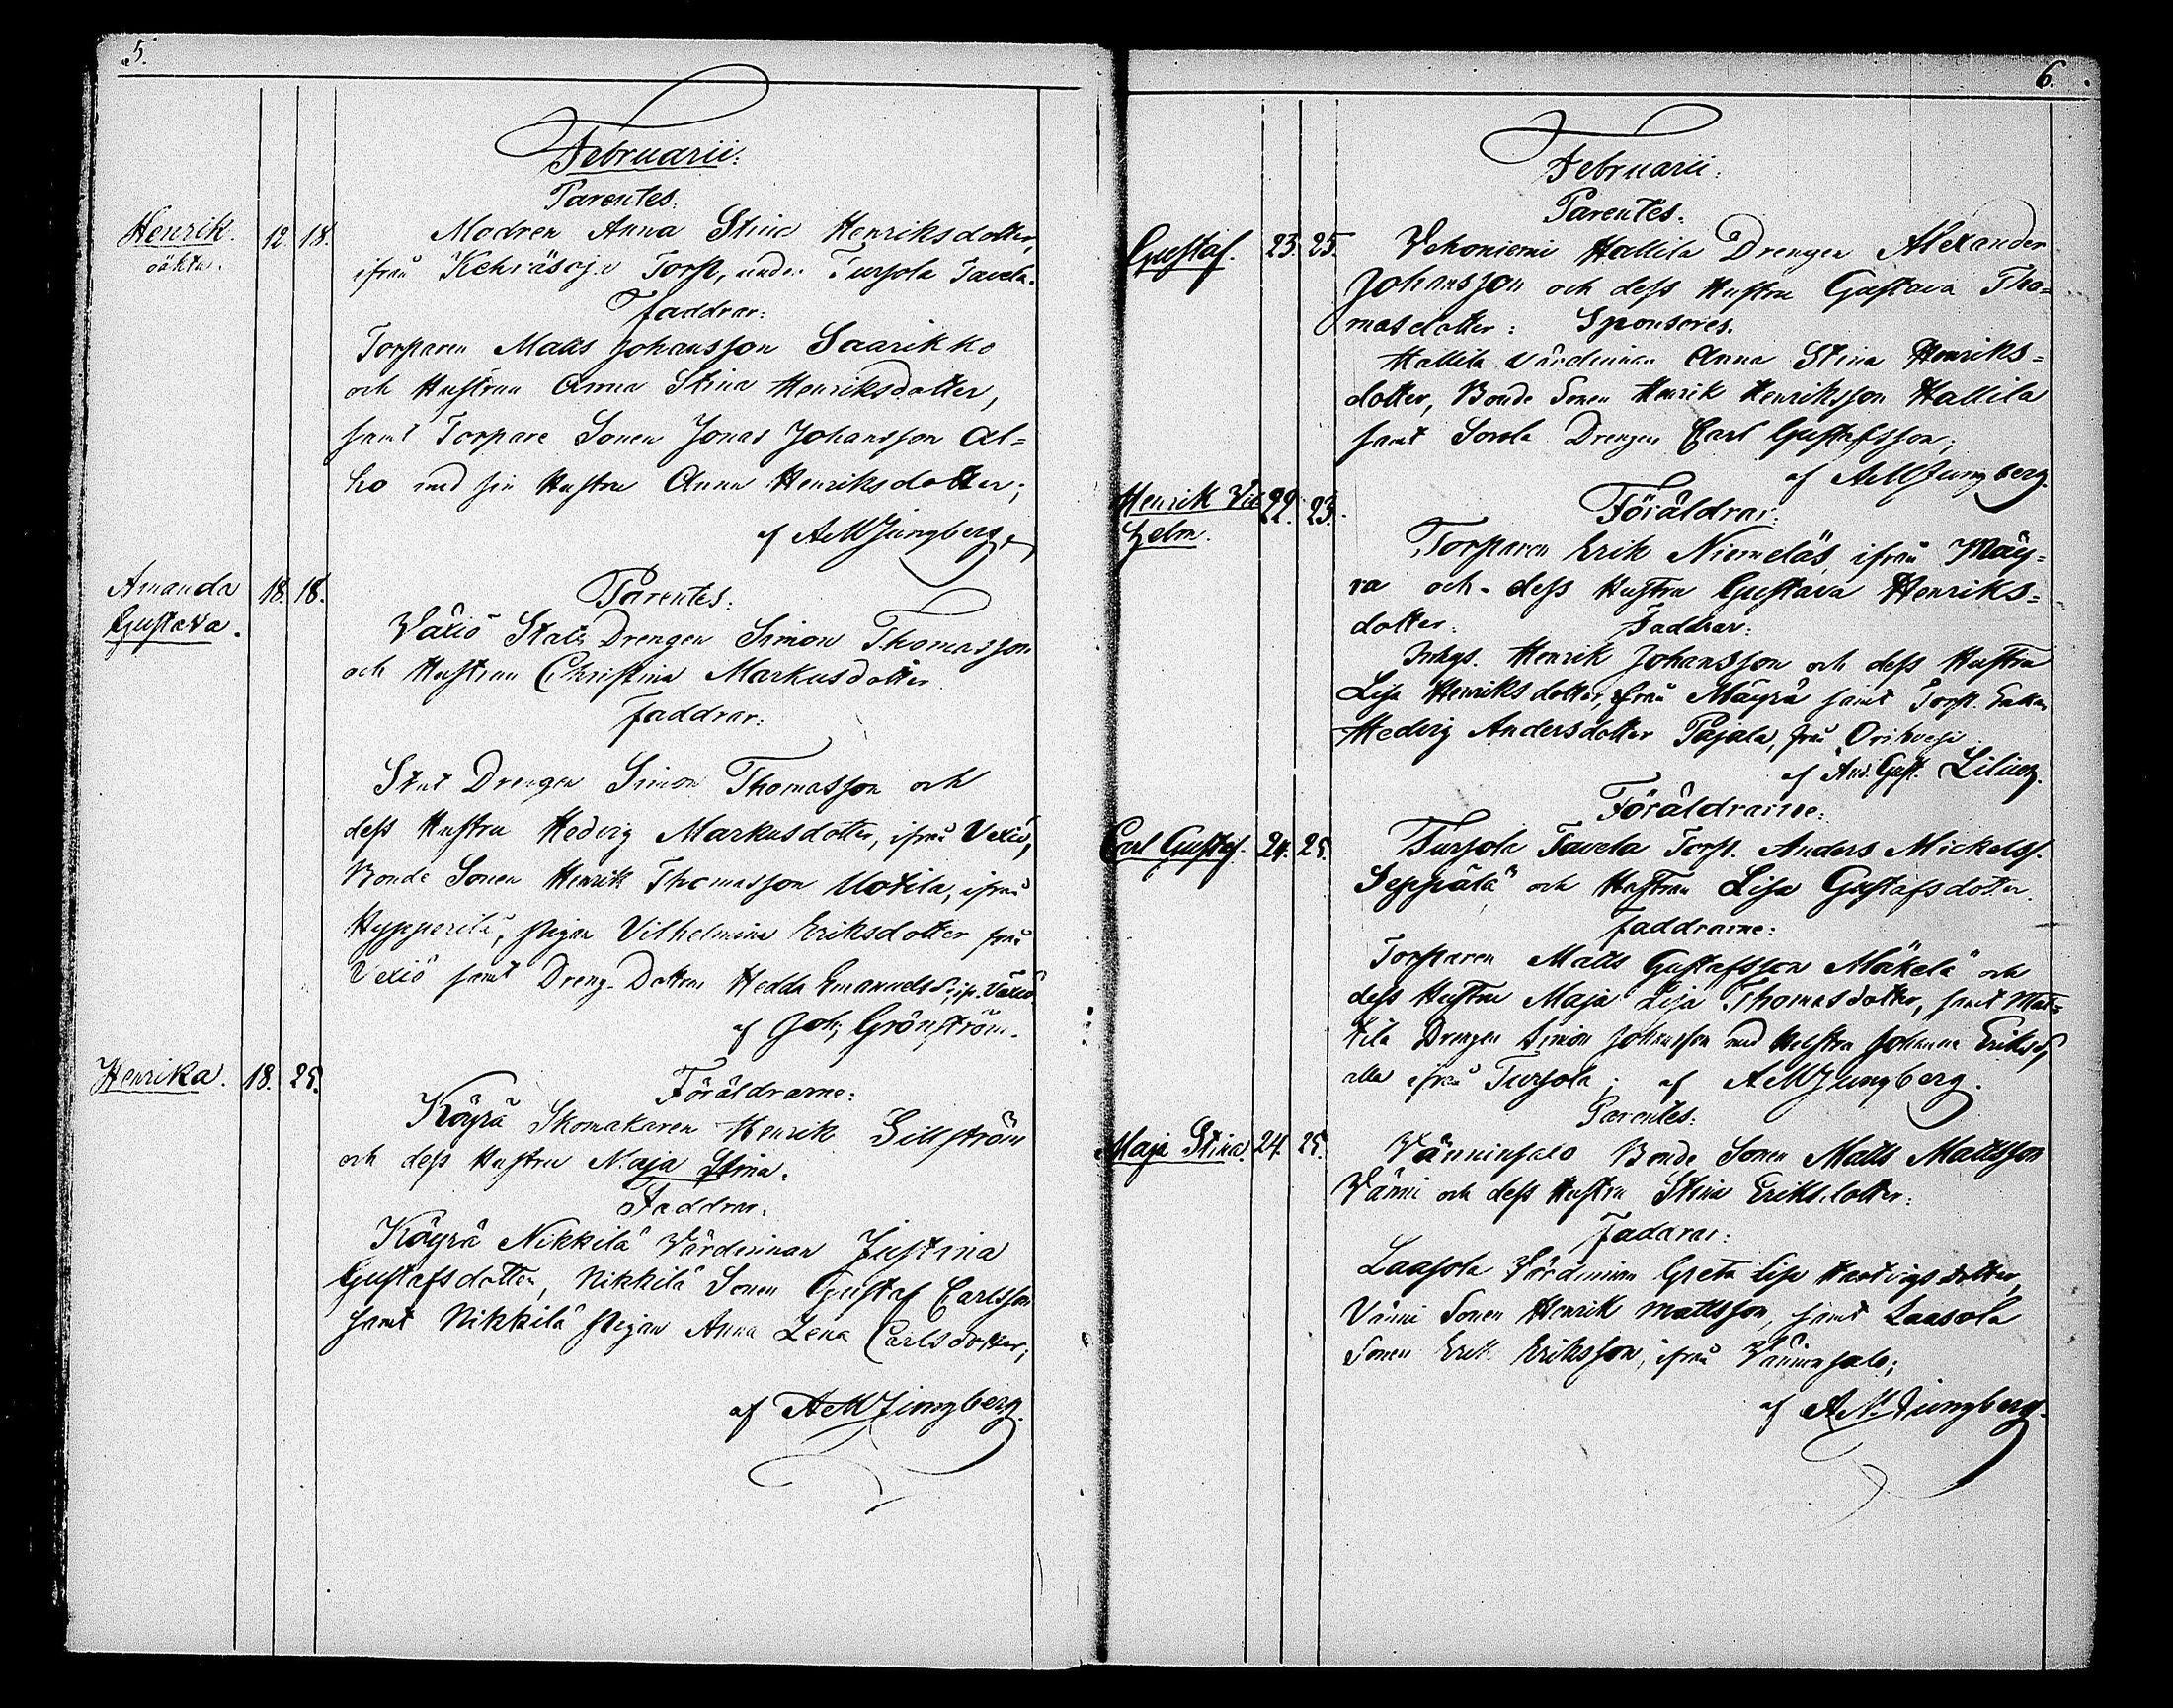 5.
Februarii:
Parentes.
Henrik. 12 18. Modren Anna Stina Henriksdotter,
oäkta. ifrån Kehräsoja Torp, under Tursola Tavela.
Faddrar:
Torparen Matts Johansson Saarikko
och Hustrun Anna Stina Henriksdotter,
samt Torpare Sonen Jonas Johansson Al=
ho med sin Hustru Anna Henriksdotter;
af AMLjungberg
Amanda 18. 18. Parentes:
Gustava. Växiö Stats Drengen Simon Thomasson
och Hustrun Christina Markusdotter
Faddrar:
Stat Drengen Simon Thomasson och
dess Hustru Hedvig Markusdotter, ifrån Vexiö,
Bonde Sonen Henrik Thomasson Uotila, ifrån
Hypperilä, pigan Vilhelmina Eriksdotter från
Vexiö samt Dreng-Dottren Hedda Emanuels D. ifr. Växiö
af Joh; Grönström.
Henrika. 18. 25. Föräldrarne:
Köyrä Skomakaren Henrik Sillström
och dess Hustru Maja Stina.
Faddrar.
Köyrä Nikkilä Värdinnan Justina
Gustafsdotter, Nikkilä Sonen Gustaf Carlsson
samt Nikkilä pigan Anna Lena Carlsdotter;
af AMLjungberg.
6.
Februarii:
Parentes.
Gustaf. 23. 25. Vekoniemi Hallila Drengen Alexander
Johansson och dess Hustru Gustava Tho=
masdotter: Sponsores.
Hallila Värdinnan Anna Stina Henriks=
dotter, Bonde Sonen Henrik Henriksson Hallila
samt Sorola Drengen Carl Gustafsson;
af AMLjungberg.
Henrik Vil 22. 23. Föräldrar:
helm. Torparen Erik Niemeläs, ifrån Mäy=
rä och dess Hustru Gustava Henriks=
dotter. Faddrar:
Inhys. Henrik Johansson och dess Hustru
Lisa Henriksdotter, från Mäyrä samt Torp. Enkan
Hedvig Andersdotter Pajala, från Orihvesi
af And. Gust. Lilius.
Föräldrarne:
Carl Gustaf. 24. 25. Tursola Tavela Torp. Anders Mickelss.
Seppälä och Hustrun Lisa Gustafsdotter.
Faddrarne:
Torparen Matts Gustafsson Mäkelä och
dess Hustru Maja Lisa Thomasdotter, samt Mat=
tila Drengen Simon Johansson med Hustru Johanna Eriksd,
alla ifrån Tursola; af AMLjungberg.
Parentes:
Maja Stina. 24. 25. Vänninsalo Bonde Sonen Matts Mattsson
Vänni och dess Hustru Stina Eriksdotter.
Faddrar:
Laasola Värdinnan Greta Lisa Hartvigsdotter,
Vänni Sonen Henrik Mattsson, samt Laasola
Sonen Erik Eriksson, ifrån Vänninsalo;
af AMLjungberg.